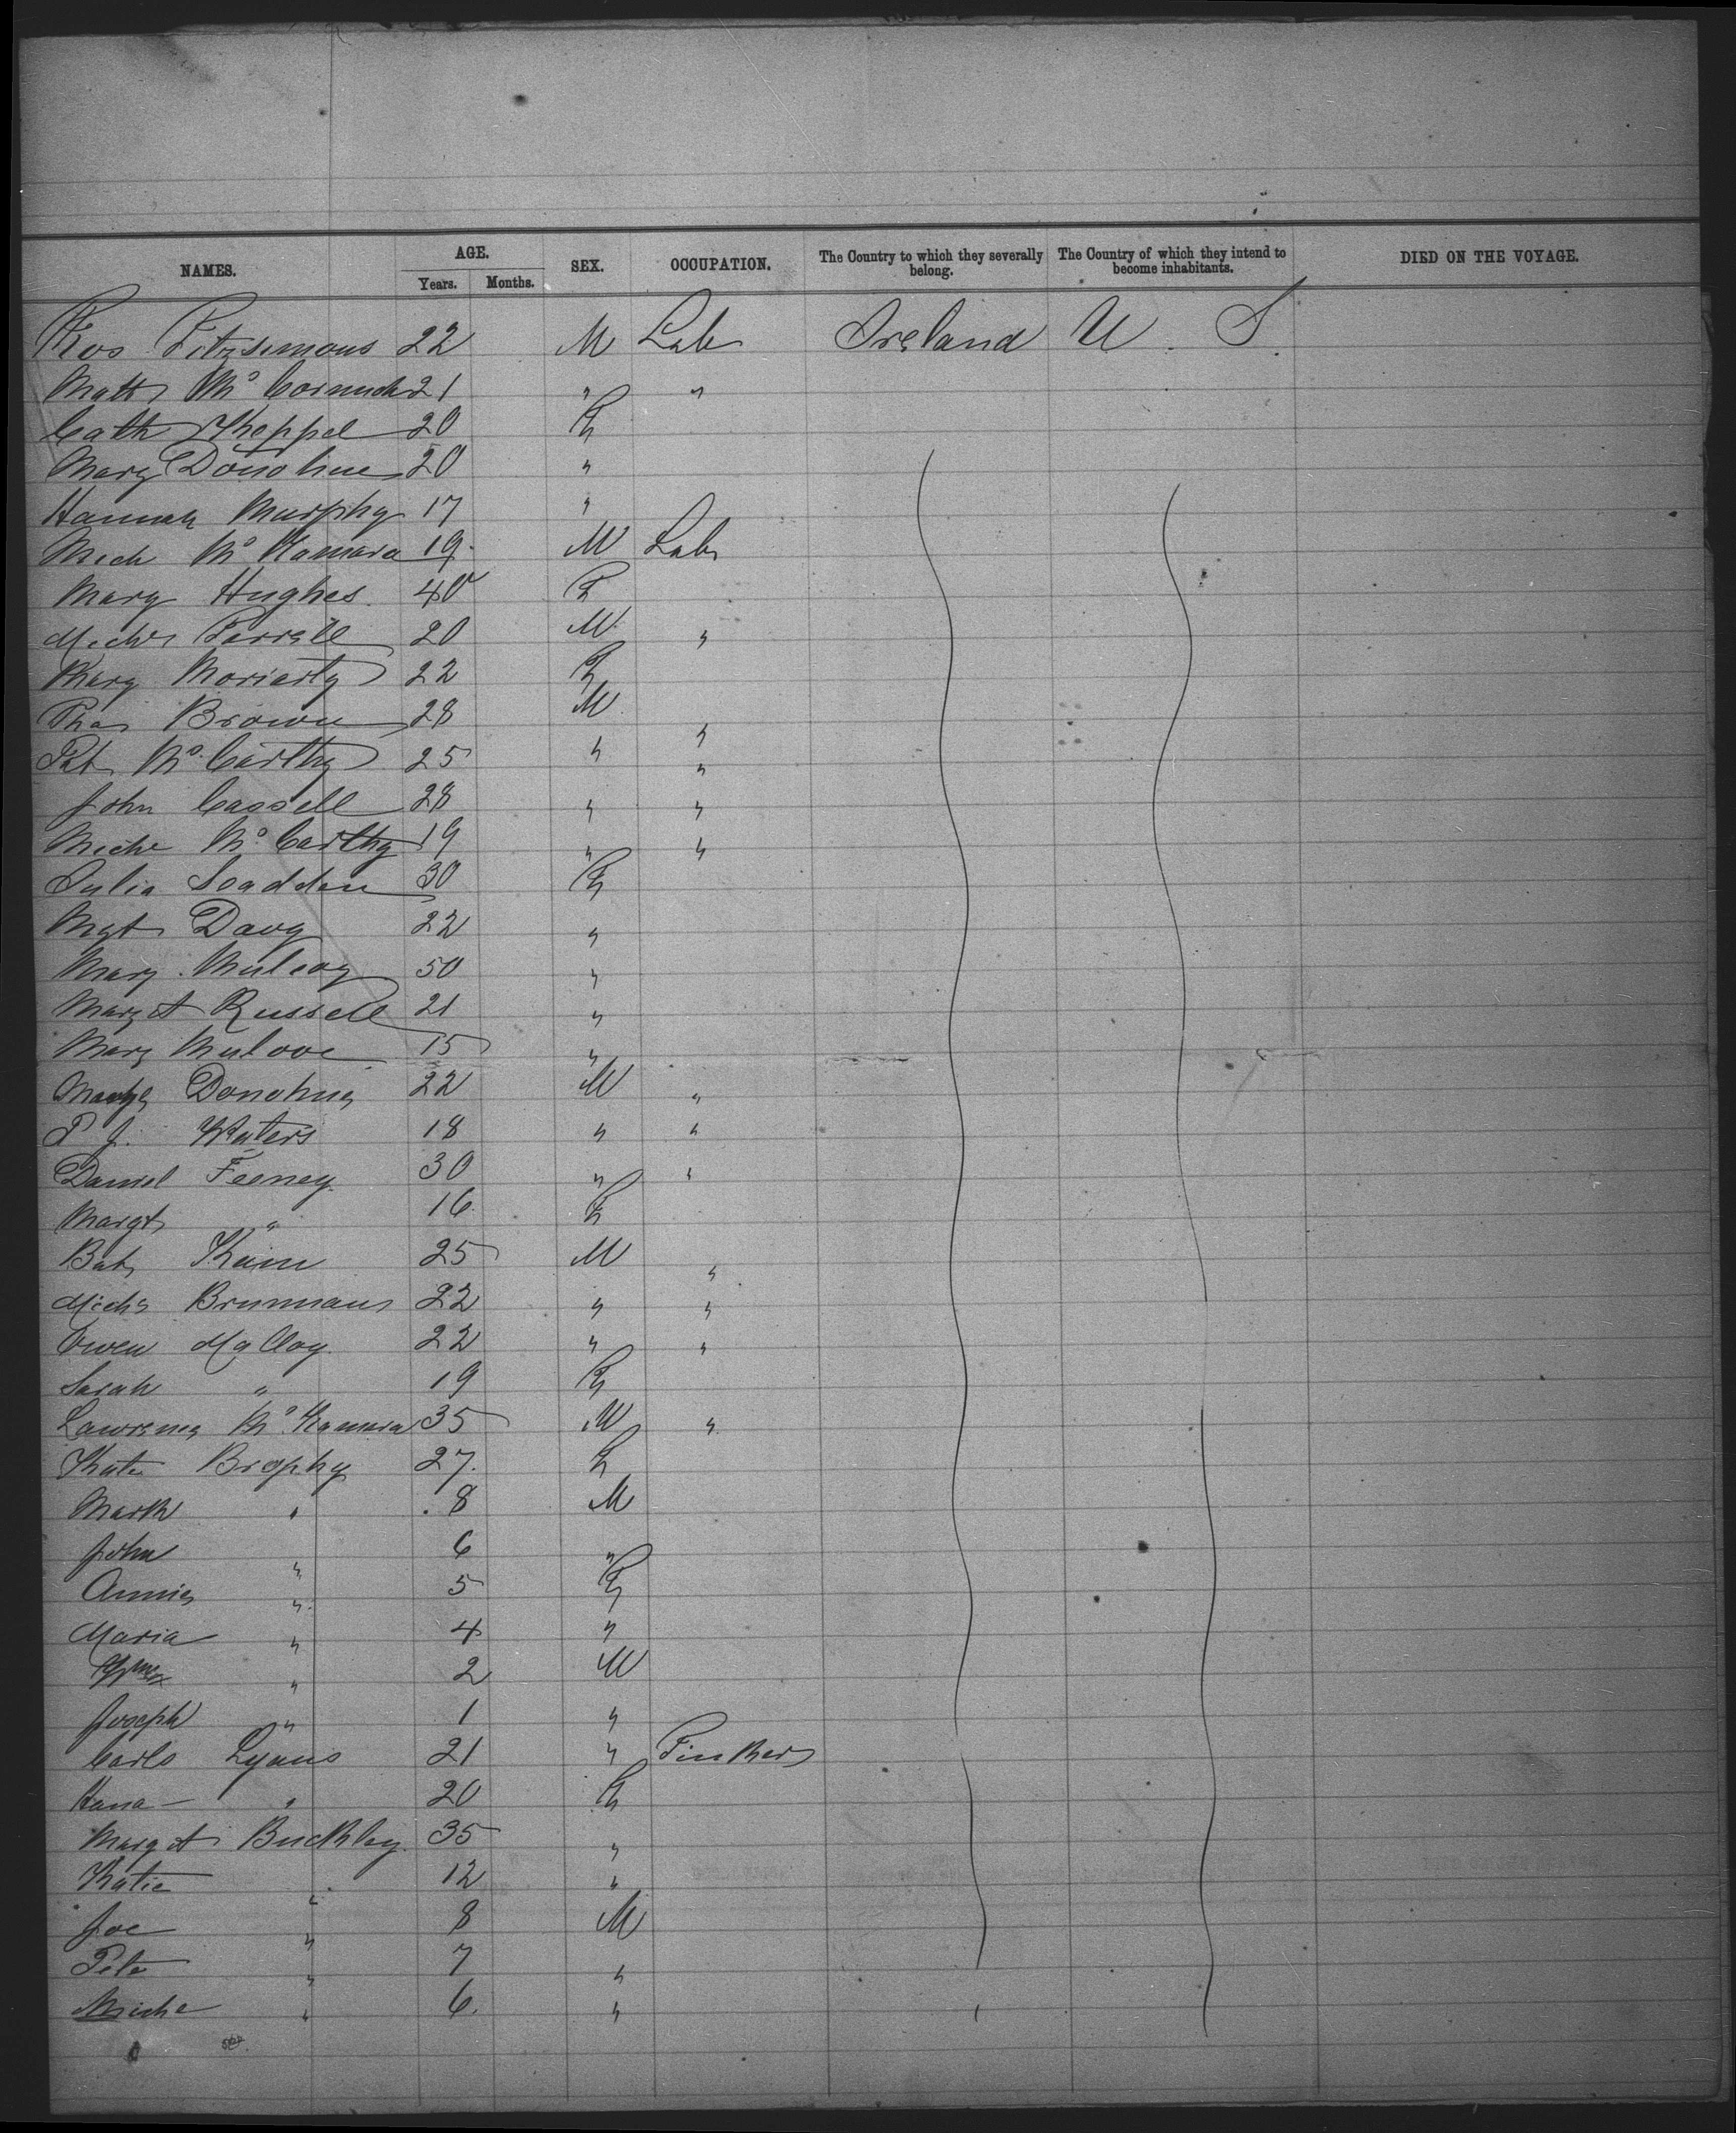 NAMES. AGE. Years. Months. SEX. OCCUPATION. The Country to which they severally belong. The Country of which they intend to become inhabitants. DIED ON THE VOYAGE.
Fitzsimons 22 M Lab Ireland U. S.
Matt Mc Cormick 21 " "
Cath Keppel 20 F
Mary Donohue 20 "
Hannah Murphy 17 "
Mich Mc Namara 19 M Lab
Mary Hughes 40 F
Mich Farrell 20 M "
Mary Moriarty 22 F
Thos Brown 28 M "
Pat Mc Carthy 25 " "
John Cassell 28 " "
Miche Mc Carthy 19 " "
Julia Scadden 30 F
Mgt Davy 22 "
Mary 50 "
Margt Russell 21 "
Mary 15 "
Donohue 22 M "
P J. Waters 18 " "
Daniel Feeney 30 " "
Margt " 16 F
Kain 25 M "
Miche 22 " "
Owen Malloy 22 " "
Sarah " 19 F
Lawrence Mc Namara 35 M "
Kate Brophy 27. F
Mark " 8 M
John " 6 "
Annie " 5 F
Maria " 4 "
Wm " 2 M
Joseph " 1 "
Carlo Lyons 21 " Tinker
Hana " 20 F
Margt Buckley 35 "
Katie " 12 "
Joe " 8 M
Pete " 7 "
Miche " 6. "